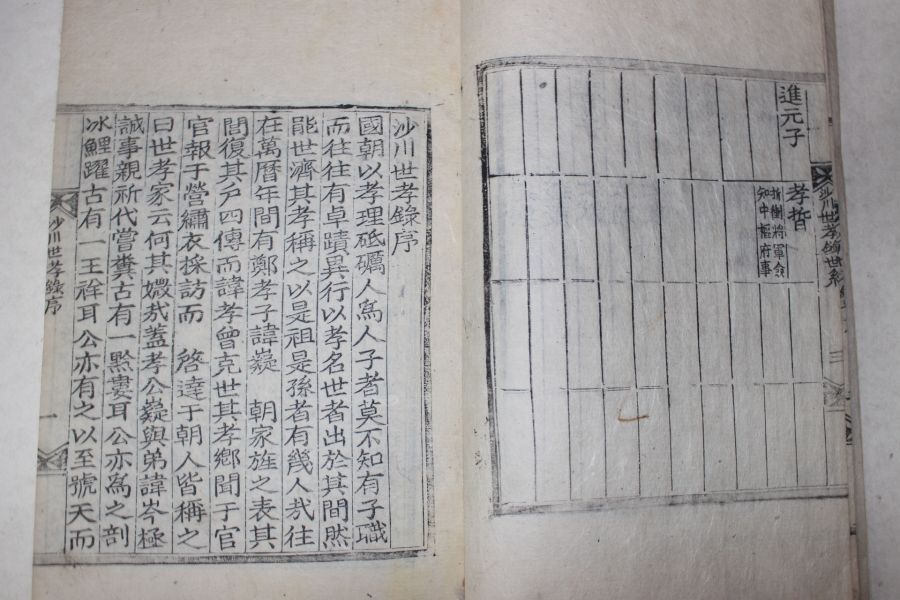 沙川世孝錄世系
進元子
孝晢
折衝將軍僉
知中樞府事
沙川世孝錄序
國朝以孝理砥礪人爲人子者莫不知有子職
而往往有卓蹟異行以孝名世者出於其間然
能世濟其孝稱之以是祖是孫者有幾人哉往
在萬曆年間有鄭孝子諱嶷 朝家旌之表其
閭復其戶四傳而諱孝曾克世其孝鄕聞于官
官報于營繡衣採訪而 啓達于朝人皆稱之
曰世孝家云何其媺哉蓋孝公嶷與弟諱岑極
誠事親祈代嘗糞古有一黔婁耳公亦爲之剖
冰鯉躍古有一王祥耳公亦有之以至號天而
沙川世孝錄序 一